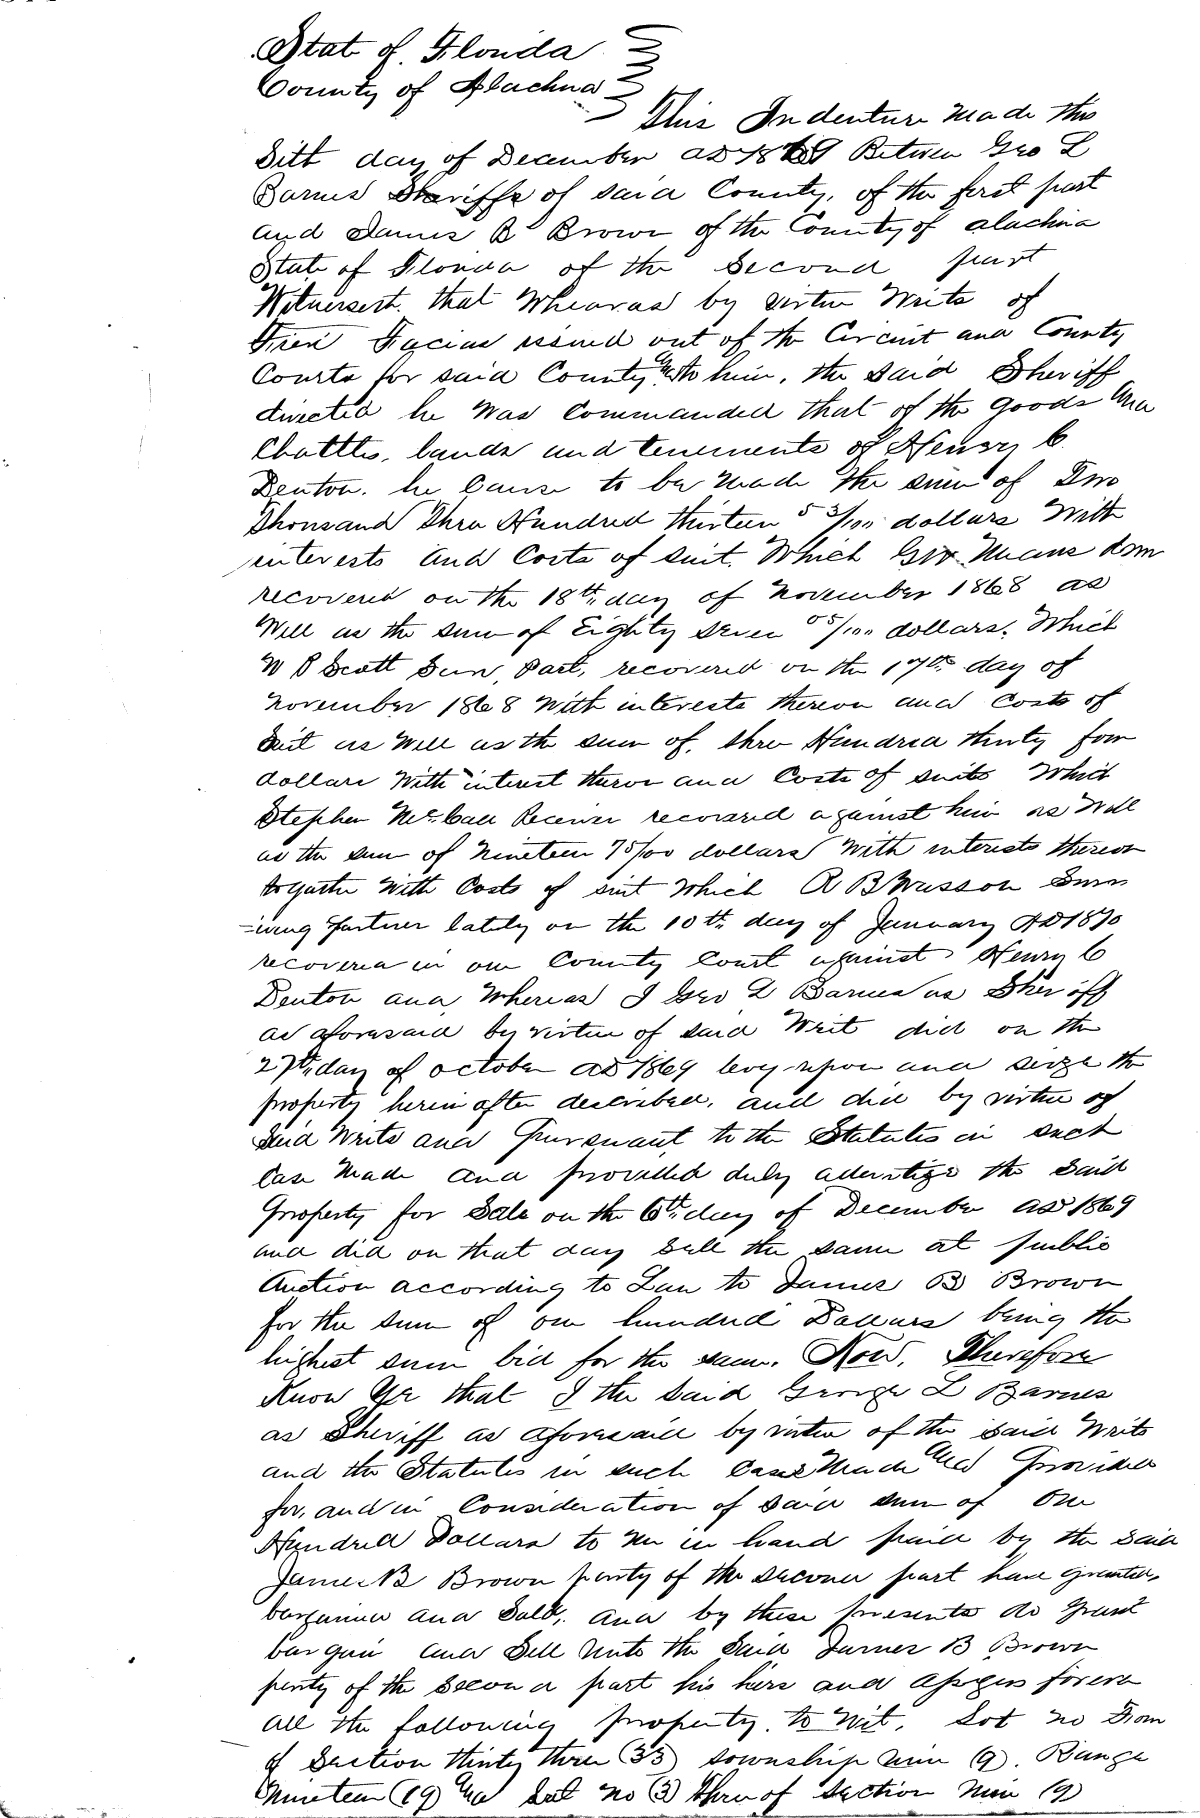 State of Florida
County of Alachua
This Indenture made this
Sith day of December AD 1869 Between Geo L
Barnes Sheriffe of said County, of the first part
and James B Brown of the County of Alachua
State of Florida of the Second part
Witnesseth that Whearas by virtue Writs of
Fieri Facias issued out of the Circuit and County
Courts for said County to him, the said Sheriff
directed he was Commanded that of the goods and
Chattles, lands and tenements of Henry C
Denton. he Cause to be made the sum of Two
Thousand Three Hundred thirteen 53/100 dollars With
interests and Costs of suit. Which Geo. Means
recovered on the 18th day of November 1868 as
Well as the sum of Eighty seven 05/100 dollars. Which
W P Scott Surv. Part. recovered on the 17th day of
November 1868 With interests thereon and Costs of
Suit as Well as the sum of, three Hundred thirty four
dollars With interest thereon and Costs of suits Which
Stephen McCall Receiver recovered against him as Well
as the sum of Nineteen 75/100 dollars With interests thereon
togather With Costs of suit Which A B Wasson Surv
=iving partner lately on the 10th day of January AD 1870
recovered in our County Court against Henry C
Denton and Whereas I Geo L Barnes as Sheriff
as aforesaid by virtue of said Writ did on the
27th day of October AD 1869 levy upon and seize the
property herein after described. and did by virtue of
Said Writs and Pursuant to the Statutes in such
Case Made and provided duly advertize the said
Property for Sale on the 6th day of December AD 1869
and did on that day Sell the same at public
Auction according to Law to James B Brown
for the sum of one hundred Dollars being the
highest sum bid for the same. Now, Therefore
Know Ye that I the said George L Barnes
as Sheriff as aforesaid by virtue of the said Writs
and the Statutes in such Case Made and Provided
for, and in Consideration of said sum of One
Hundred Dollars to me in hand paid by the said
James B Brown party of the second part have granted,
bargained and Sold, and by these presents do grant
bargain and Sell unto the Said James B Brown
party of the Second part his heirs and assigns forever
all the following property. to Wit. Lot no
of Section thirty three (33) township nine (9). Range
Nineteen (19) and Lot no (3) three of section nine (9)